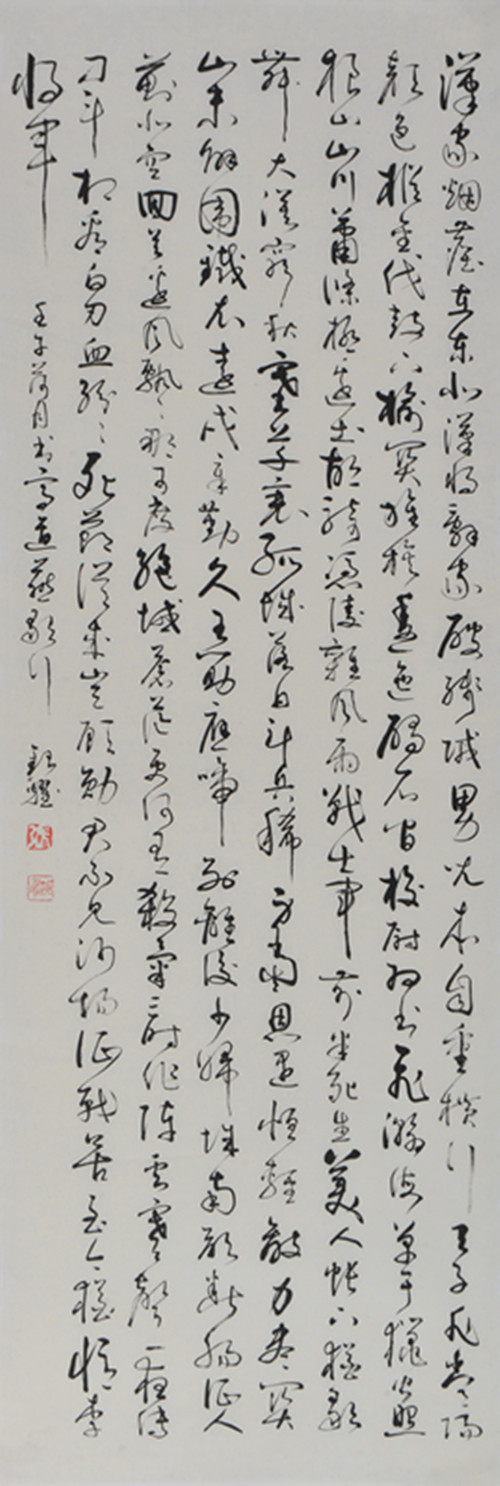 漢家烟塵在東北漢將辭家破殘賊男兒本自重橫行天子非常賜
顏色摐金伐鼓下榆關旌旆逶迤碣石間校尉羽書飛瀚海單于獵火照
狼山山川蕭條極邊土胡騎憑陵雜風雨戰士軍前半死生美人帳下猶歌
舞大漠窮秋塞草衰孤城落日斗兵稀身當恩遇恒輕敵力盡關
山未解圍鐵衣遠戍辛勤久玉筯應啼別離後少婦城南欲斷腸征人
薊北空回首邊風飄〻那可度絕域蒼茫更何有殺氣三時作陣雲寒聲一夜傳
刁斗相看白刃血紛〻死節從來豈顧勳君不見沙場征戰苦至今猶憶李
將軍 壬午荷月書高適燕歌行